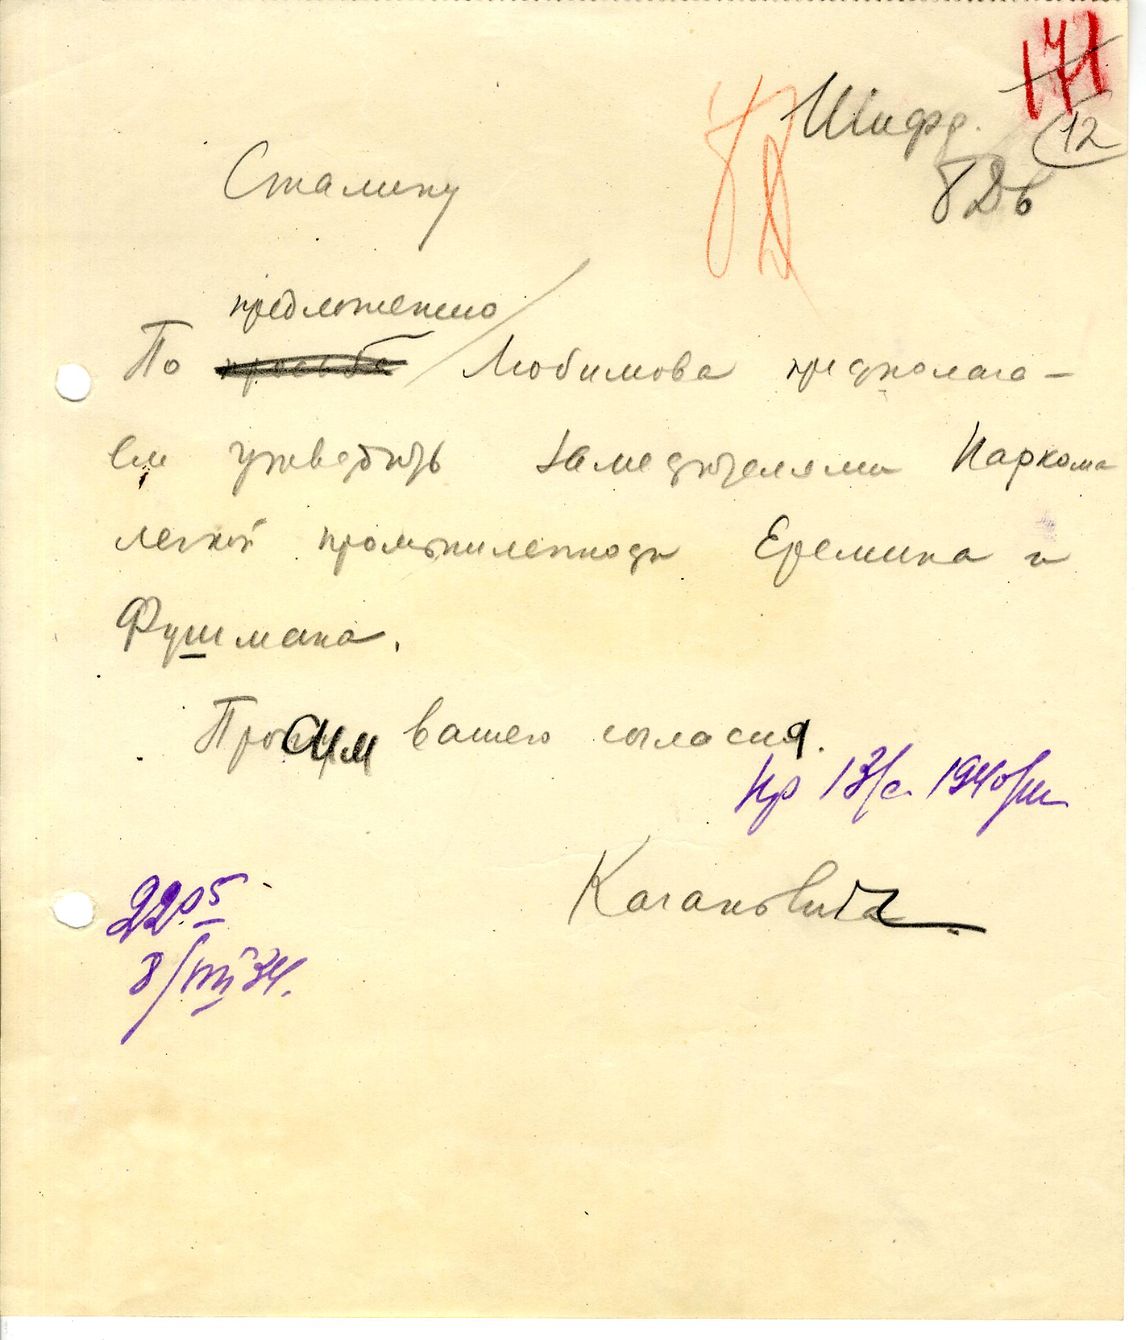 171
Шифр.
12
Сталину
предложению
По просьбе Любимова предполага-
ем утвердить заместителями Наркома
легкой промышленности Еремина и
Фушмана.
Просим вашего согласия.
Каганович
22 05
8/VIII 34.